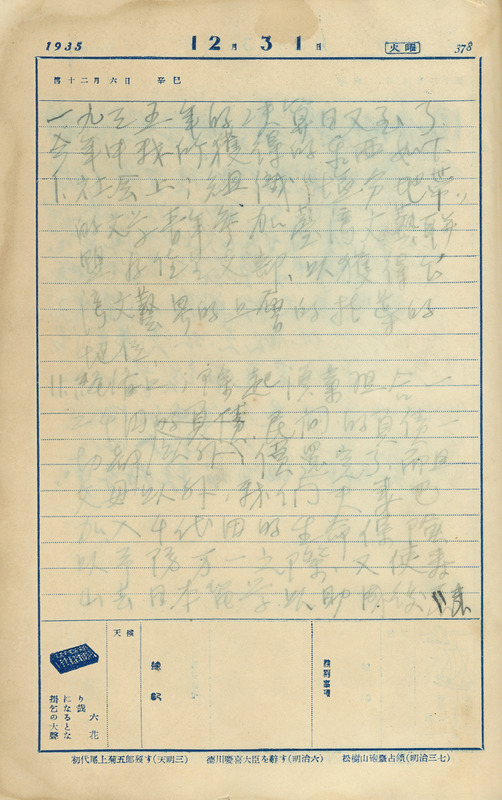 1935 12月31日 火曜 378
舊十二月六日 辛巳
一九三五年的決算日又到了
今年中我所獲得的東西如下
1. 社会上;組織塩分地帶
的文学青年參加臺湾文藝聯
盟 佳里支部, 以獲得台
湾文藝界的上層的指導的
地位
11. 經濟上; 組合
三千円的負債 民间的負債一
切都 以外 償還完了, 而且
父母以外, 我们夫妻也
加入千代田的生命保險
以予防万一之際, 又使
山去日本留学, 以助
天候
豫記
六花
り錢
になるとな
掛乞の大聲
初代尾上菊五郎歿す(天明三) 德川慶喜大臣を辭す(明治六) 松樹山砲臺占領(明治三七)